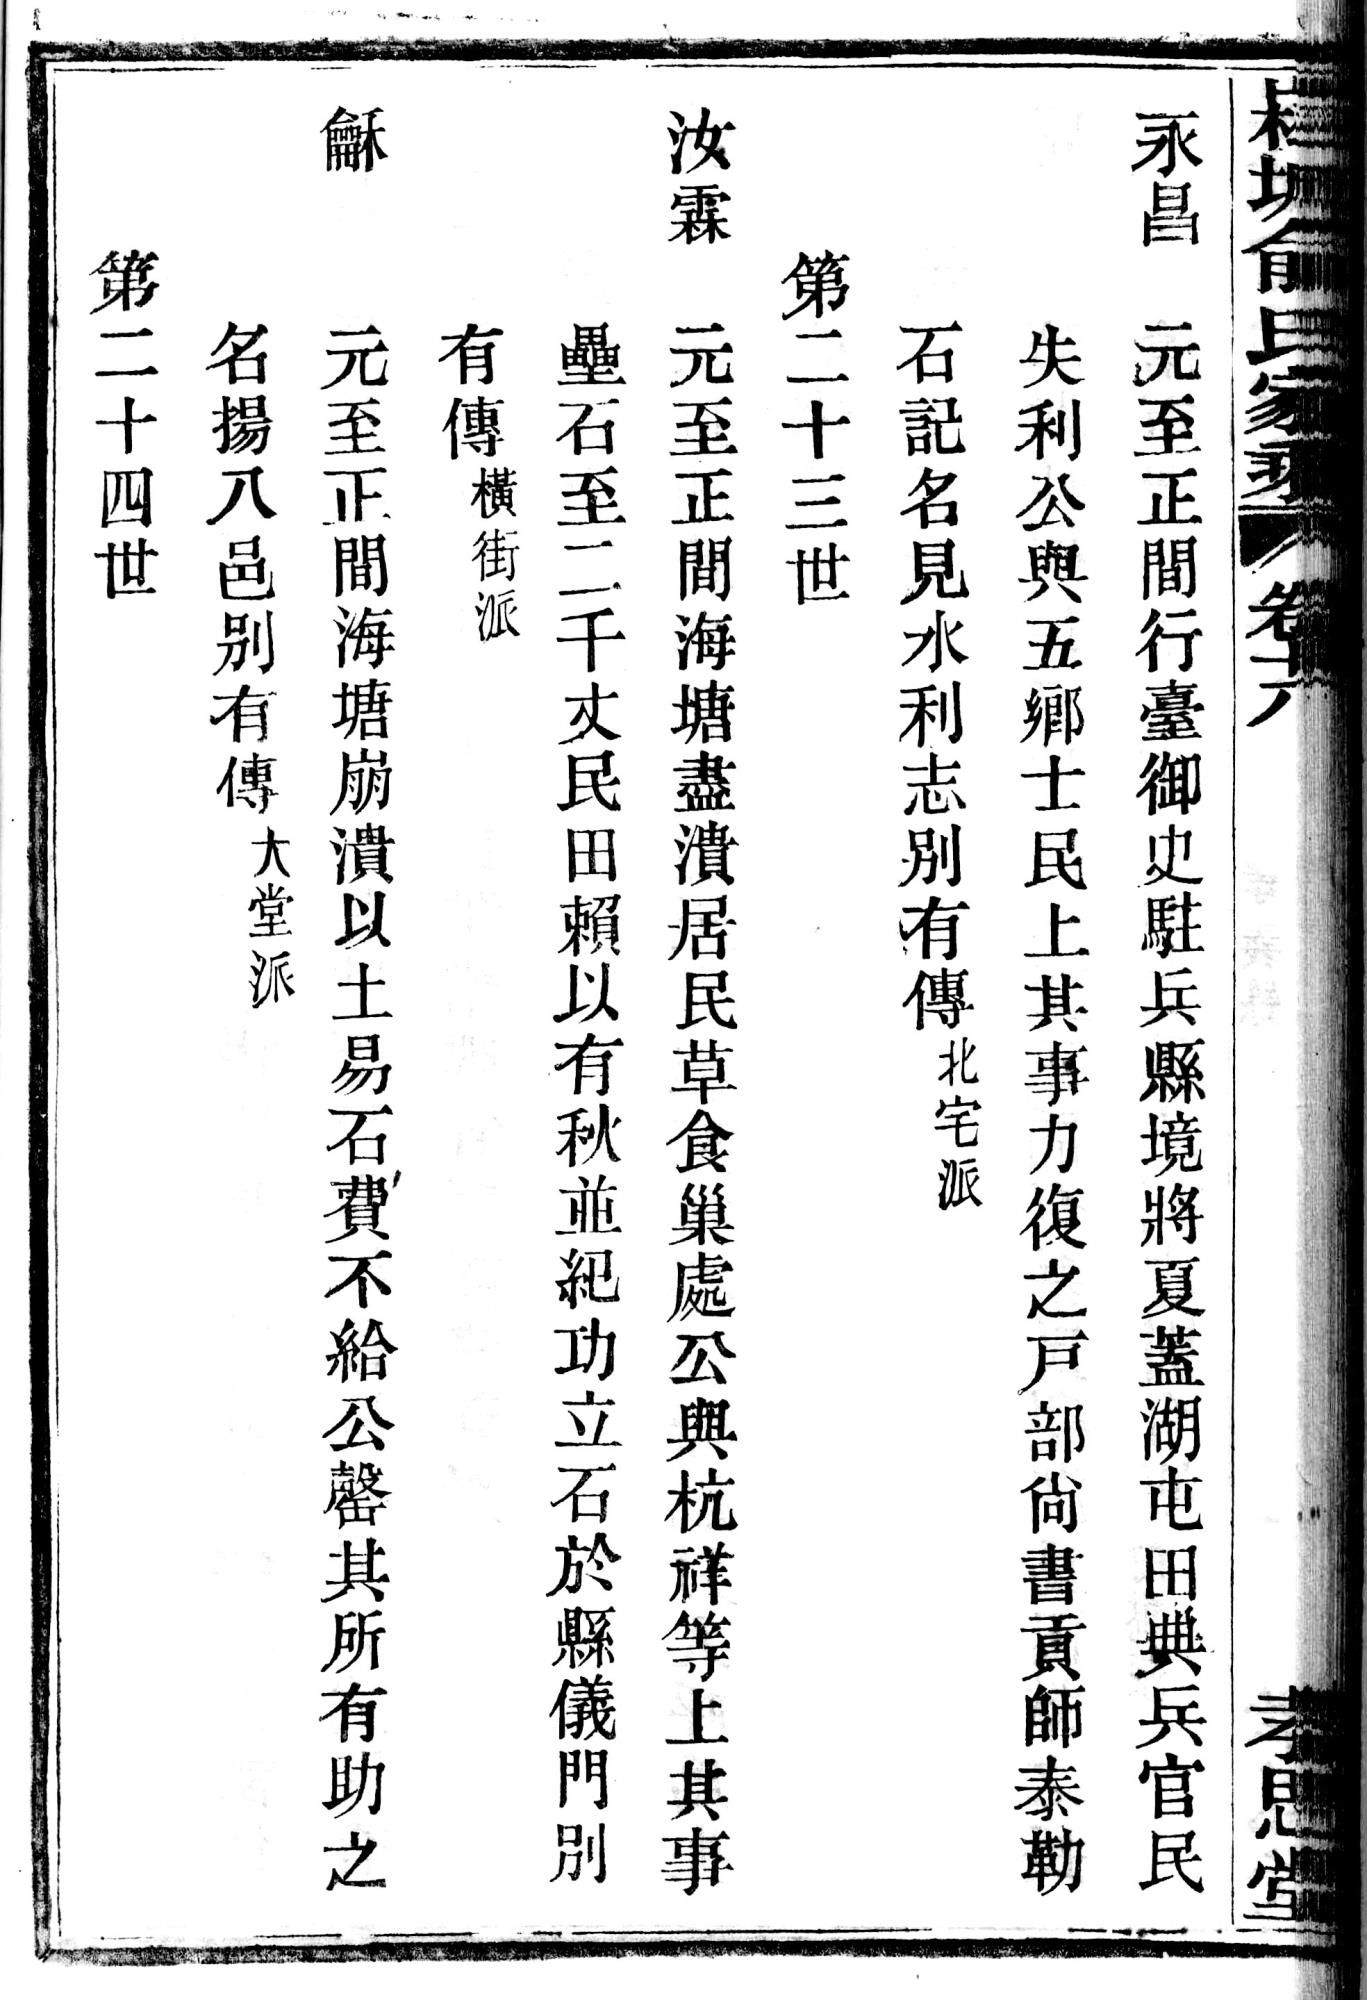 俞氏家乘 卷十六 孝思堂
永昌 元至正間行臺御史駐兵縣境將夏蓋湖屯田典兵官民
失利公與五鄉士民上其事力復之戸部尙書貢師泰勒
石記名見水利志別有傳北宅派
第二十三世
汝霖 元至正間海塘盡潰居民草食巢處公與杭祥等上其事
壘石至二千丈民田賴以有秋並紀功立石於縣儀門別
有傳橫街派
龢 元至正間海塘崩潰以土易石費不給公罄其所有助之
名揚八邑别有傳大堂派
第二十四世